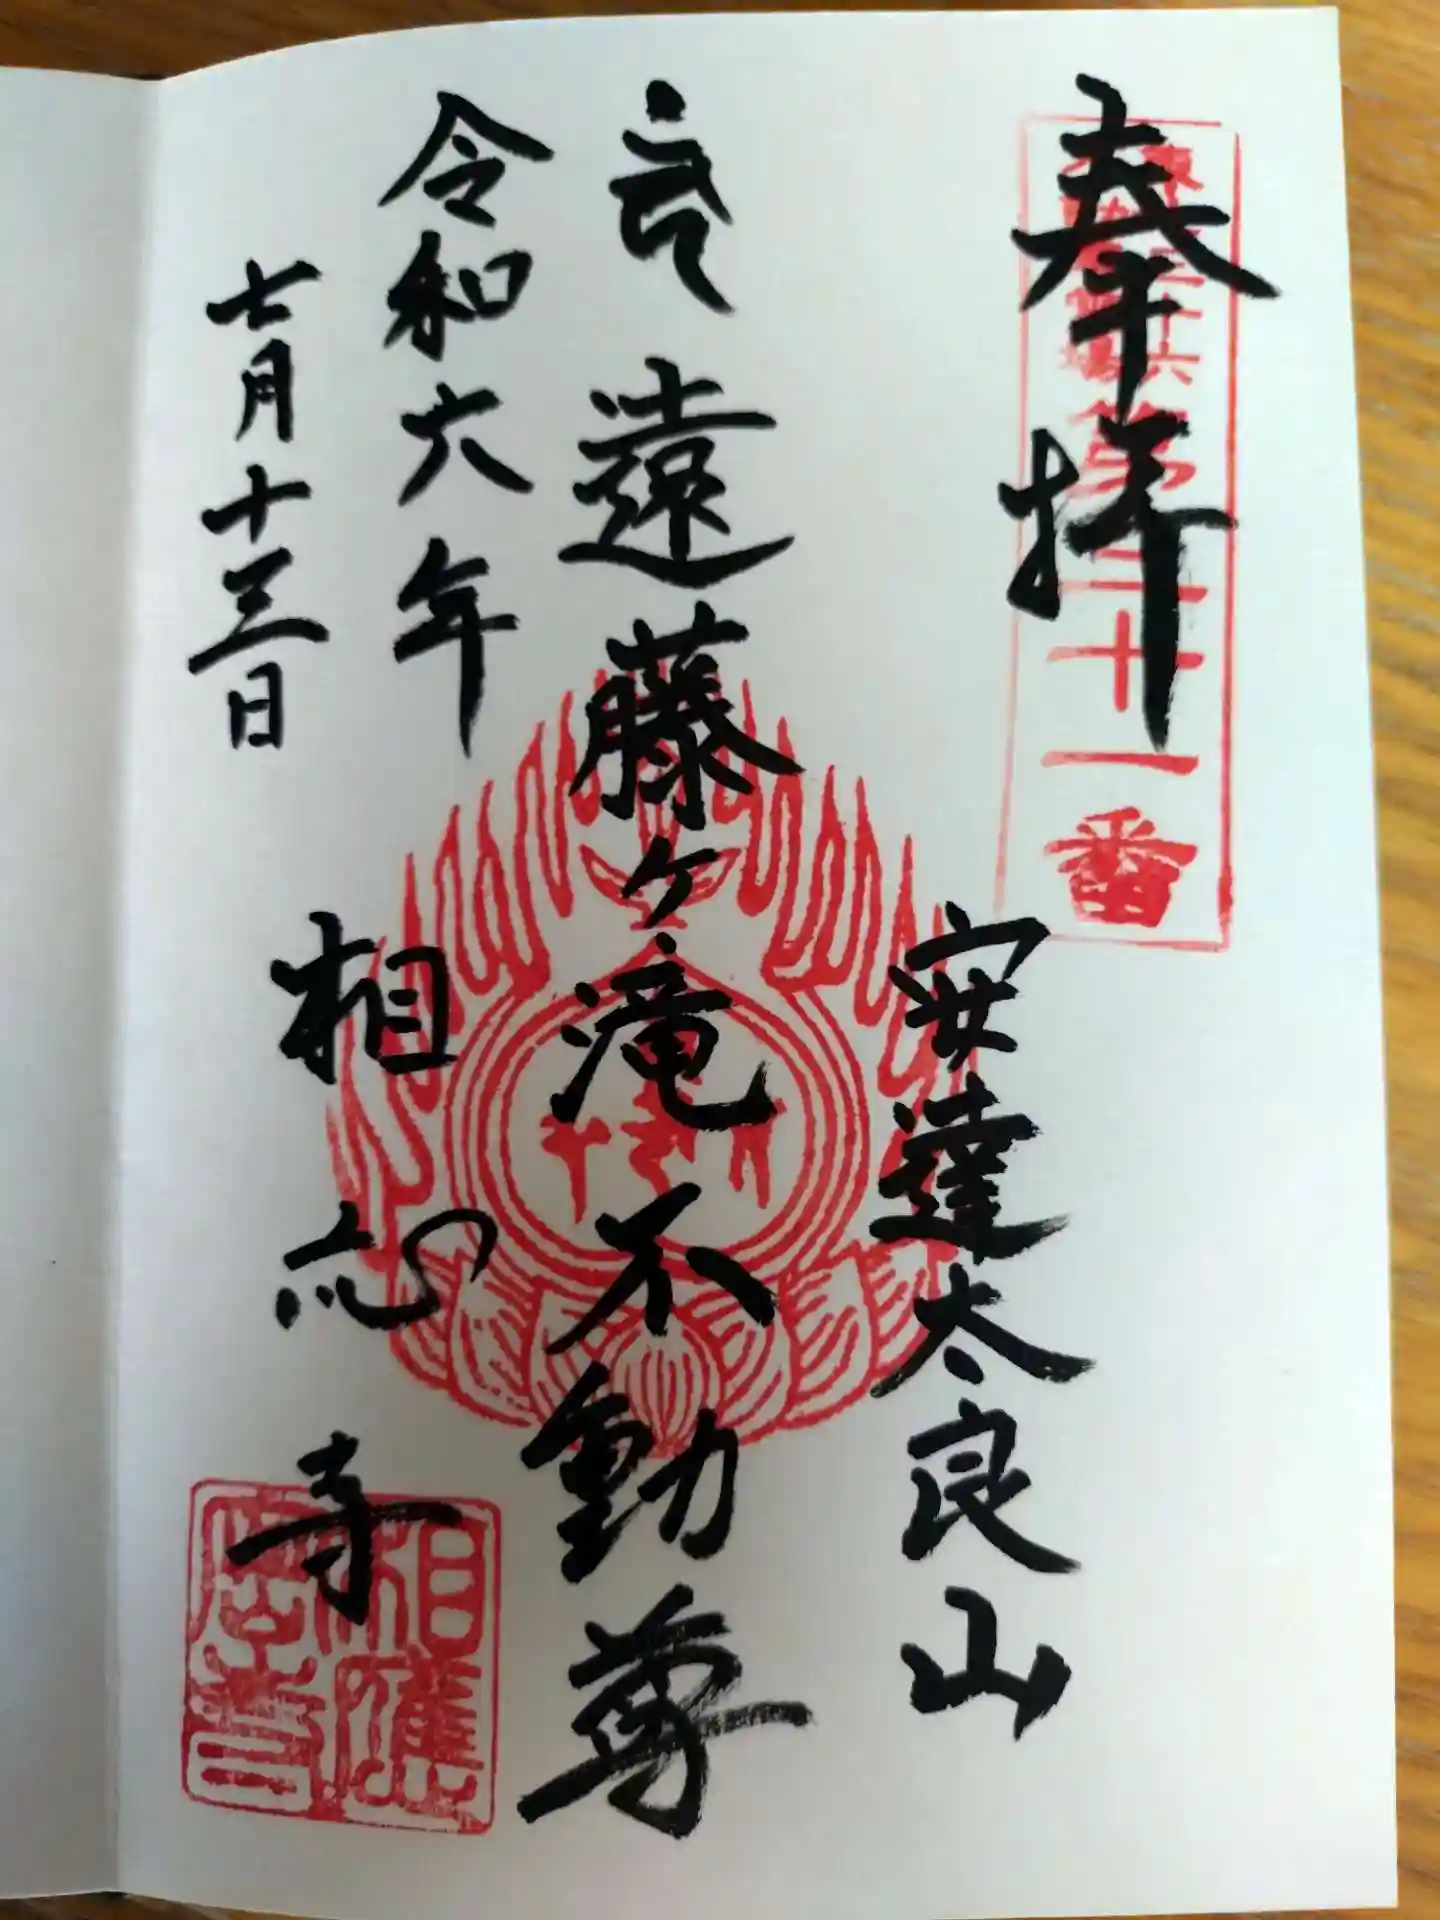 奉拝
第三十一番
安達太良山
遠藤ヶ滝不動尊
令和六年
七月十三日
相応寺
相應